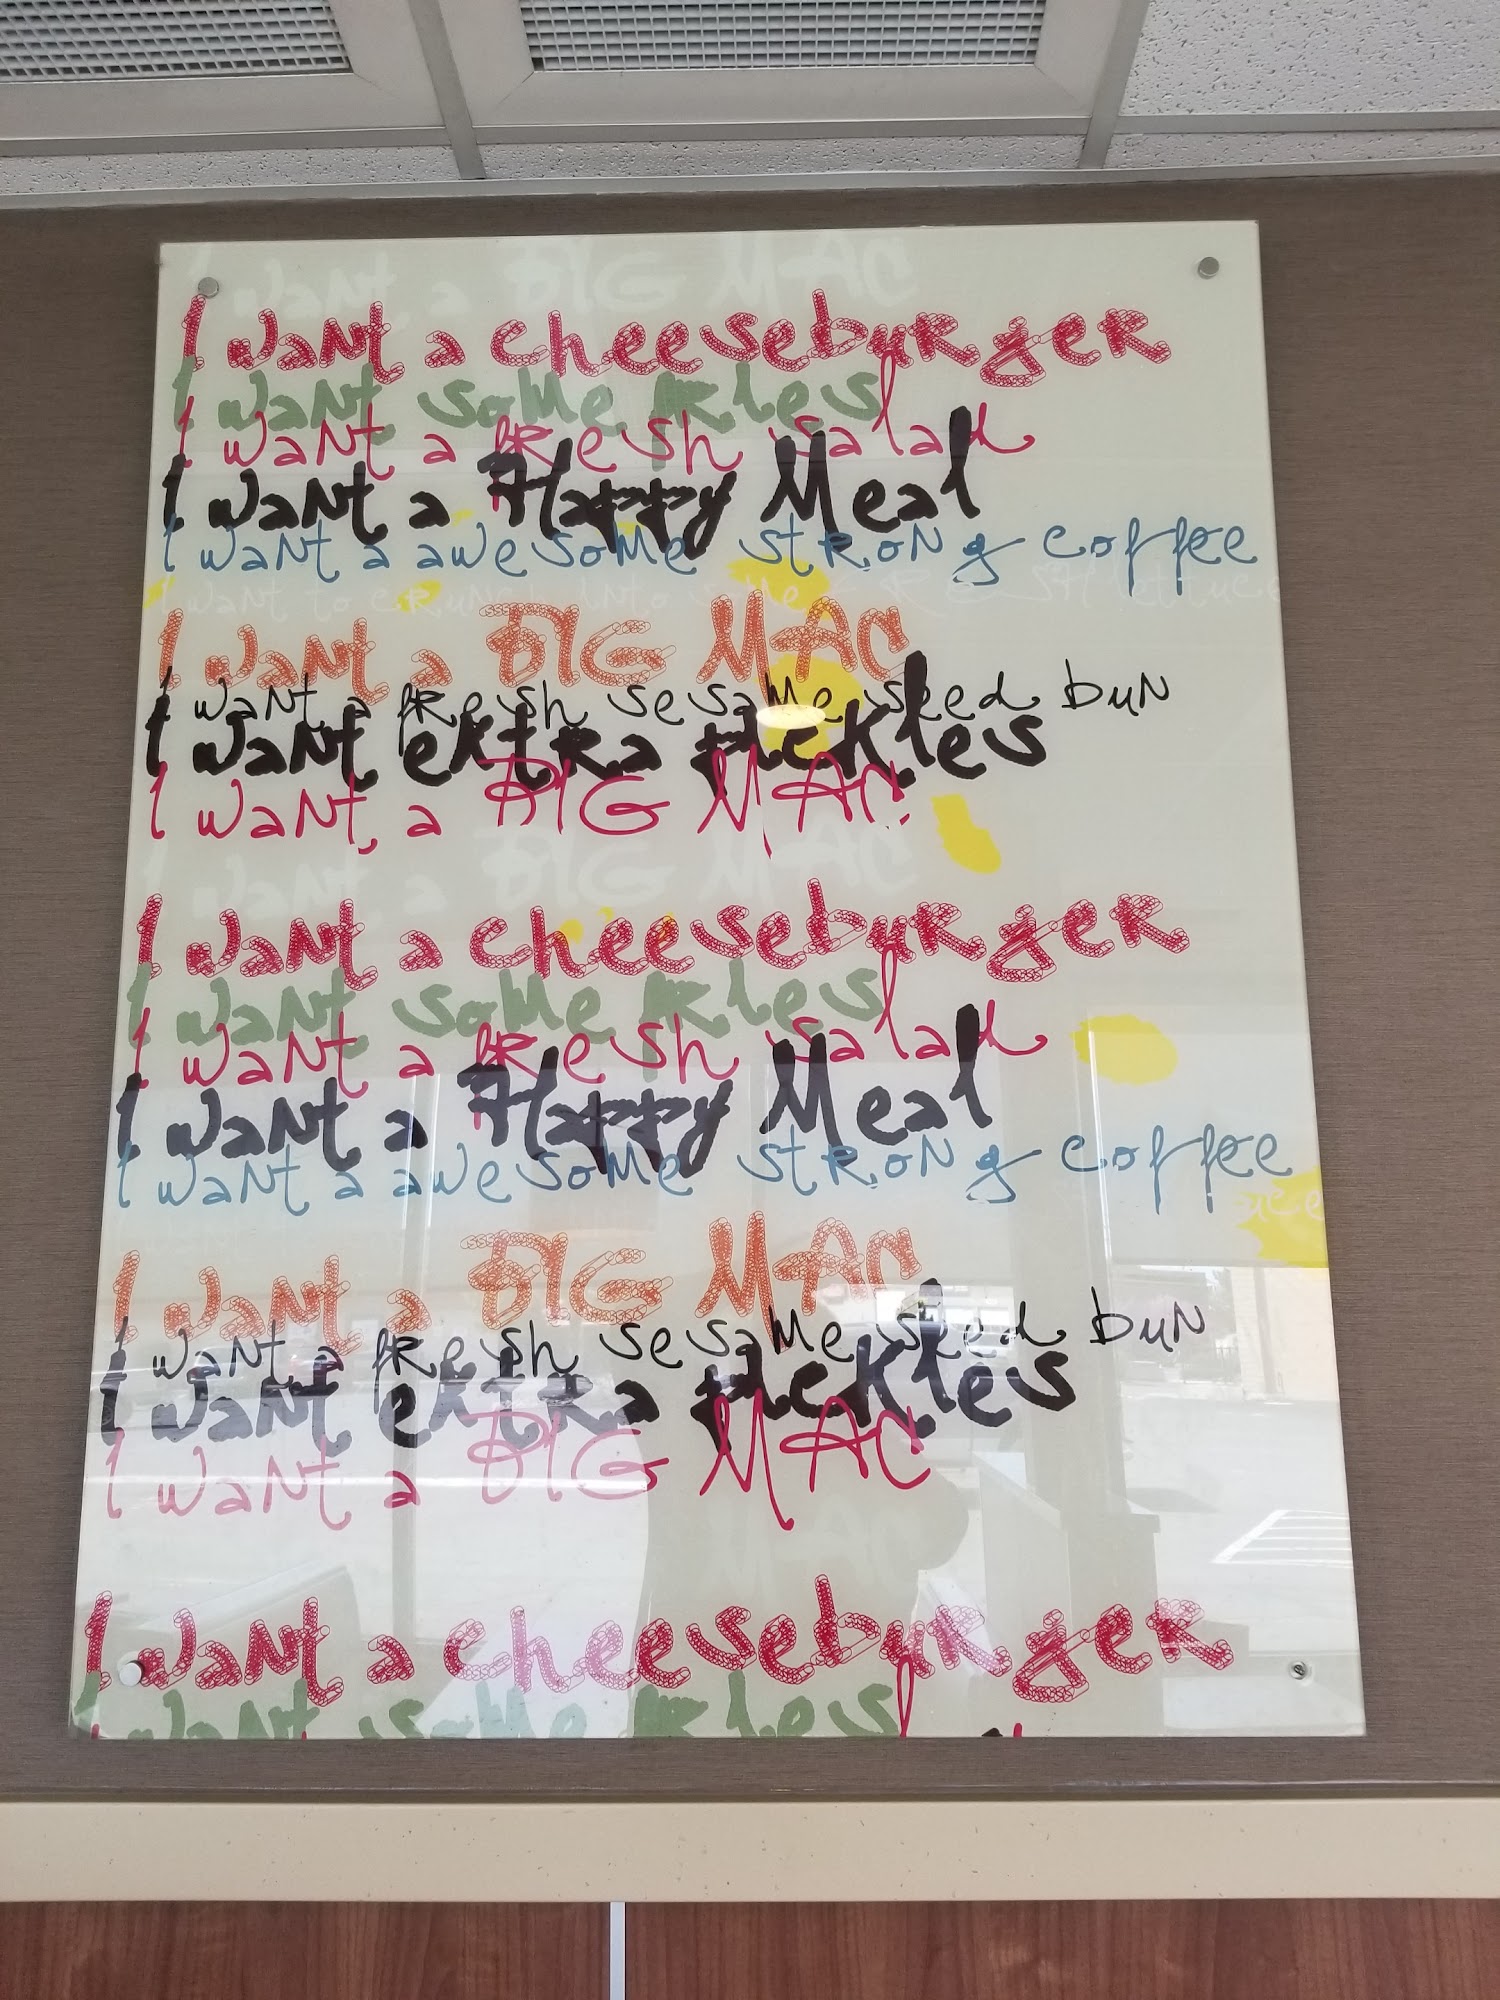 want a BIG MAC
I want a cheeseburger
I want some fries
I want a fresh salad
I want a Happy Meal
I want a awesome strong coffee
I want to crunch into some FRESH lettuce
I want a BIG MAC
I want a fresh sesame seed bun
I want extra pickles
I want a BIG MAC
I want a BIG MAC
I want a cheeseburger
I want some fries
I want a fresh salad
I want a Happy Meal
I want a awesome strong coffee
uce
I want a BIG MAC
I want a fresh sesame seed bun
I want extra pickles
I want a BIG MAC
MAC
I want a cheeseburger
I want some fries